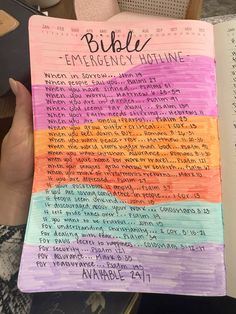 JAN FEB MAR APR MAY JUN JUL AUG SEP OCT NOV DEC
Bible
- EMERGENCY HOTLINE -
When in sorrow... John 14
When people fail you... Psalm 27
When you have sinned... Psalm 51
When you worry... Matthew 6:19-34
When you are in danger... Psalm 91
When God seems far... Psalm 139
When your faith needs stirring... Hebrews 11
When you are lonely/scared... Psalm 23
When you grow bitter/critical... 1 Cor. 13
When you feel down & out... Romans 8:31
When you want peace/rest... Matthew 11:25-30
When the world seems bigger than God... Psalm 90
When you want Christian assurance... Romans 8:1-30
When you leave home for work or travel... Psalm 121
When your prayers grow narrow or selfish... Psalm 67
When you think of investments/returns... Mark 10
When you are depressed... Psalm 27
If your pocketbook is empty... Psalm 37
If you are losing confidence in people... 1 Cor. 13
If people seem unkind... John 15
If discouraged about your work...
If pride takes over... Psalm 19
If you want to be fruitful... John 15
For understanding Christianity... 2 Cor. 5:15-19
For dealing with fear... Psalm
For Paul's secret to happiness... Colossians 3:12-17
For security... Psalm 121
For assurance... Mark 8:35
For reassurance... Psalm 145
AVAILABLE 24/7